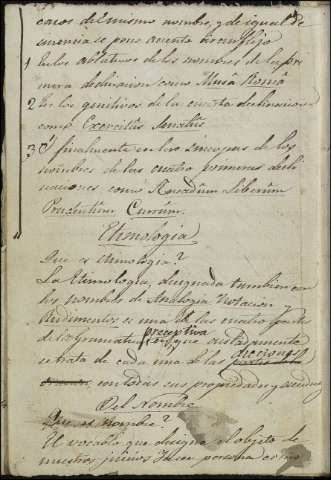 casos del mismo nombre, y de igual de
sinencia se pone acento circunflejo
1 En los ablativos de los nombres de la pri
mera declinacion como Musâ Româ
2 En los genitivos de la cuarta declinacion
como Exercitûs Senatûs
3 I finalmente en los sincopas de los
nombres de las cuatro primeras decli
naciones como Liberûm
Prudentûm Currûm.
Etimologia
Que es etimologia?
La Etimologia, designada tambien con
los nombres de Analogia Notacion y
Rudimentos es una de las cuatro partes
de la Gramatica preceptiva en que aisladamente
se trata de cada una de las dicciones
con todas sus propiedades y
Del Nombre
Que es nombre?
El vocablo que designa el objeto de
nuestros juicios sea persona como